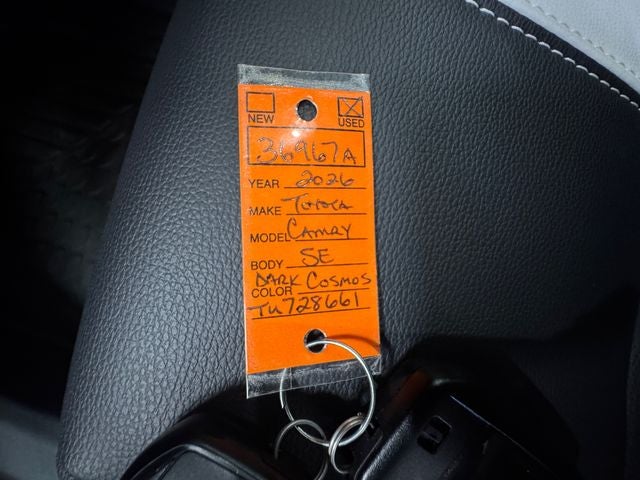 NEW USED
36967A
YEAR 2026
MAKE TOYOTA
MODEL CAMRY
BODY SE
COLOR DARK COSMOS
TU728661